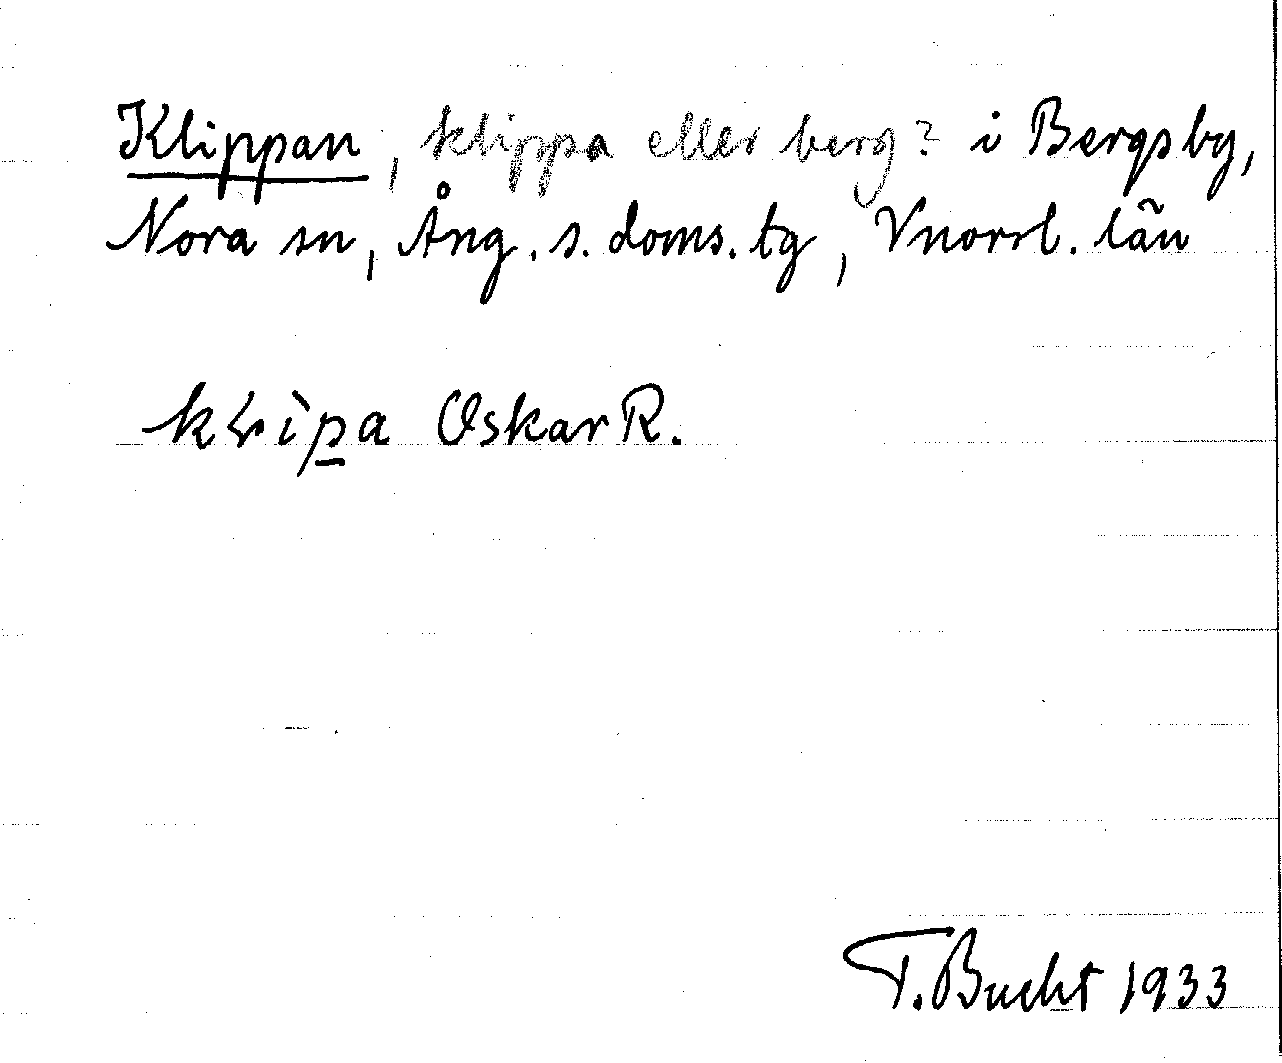 Klippan, klippa eller berg? i Bergsby,
Nora sn, Ång. s. doms. tg, Vnorrl. län
Oskar R.
T. Bucht 1933